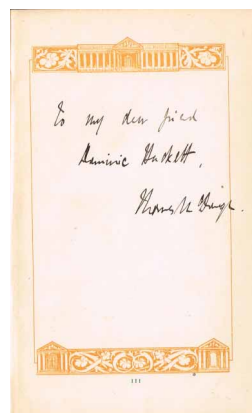 To my dear friend
Dominic Hackett,
Thomas M
III